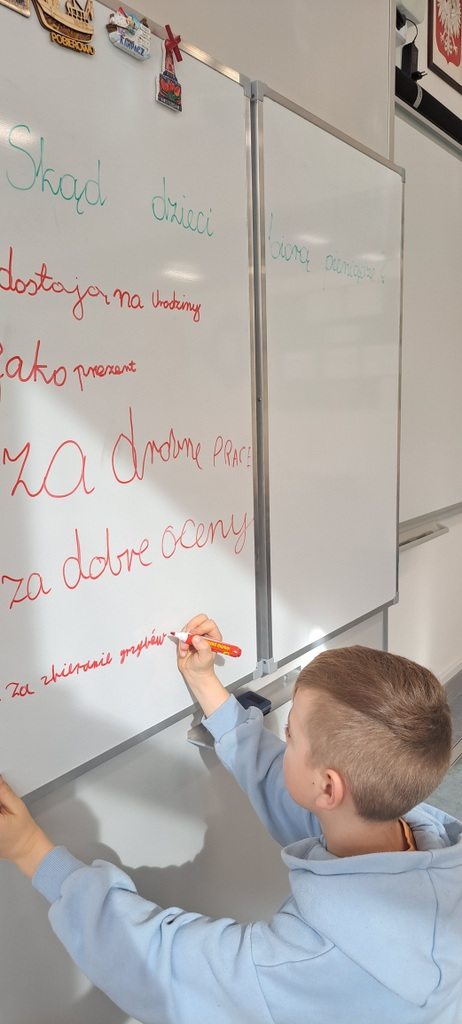 POBIEROWO
KARPACZ
Skąd dzieci biorą pieniądze?
dostają na urodziny
jako prezent
za drobne PRACE
za dobre oceny
za zbieranie grzybów